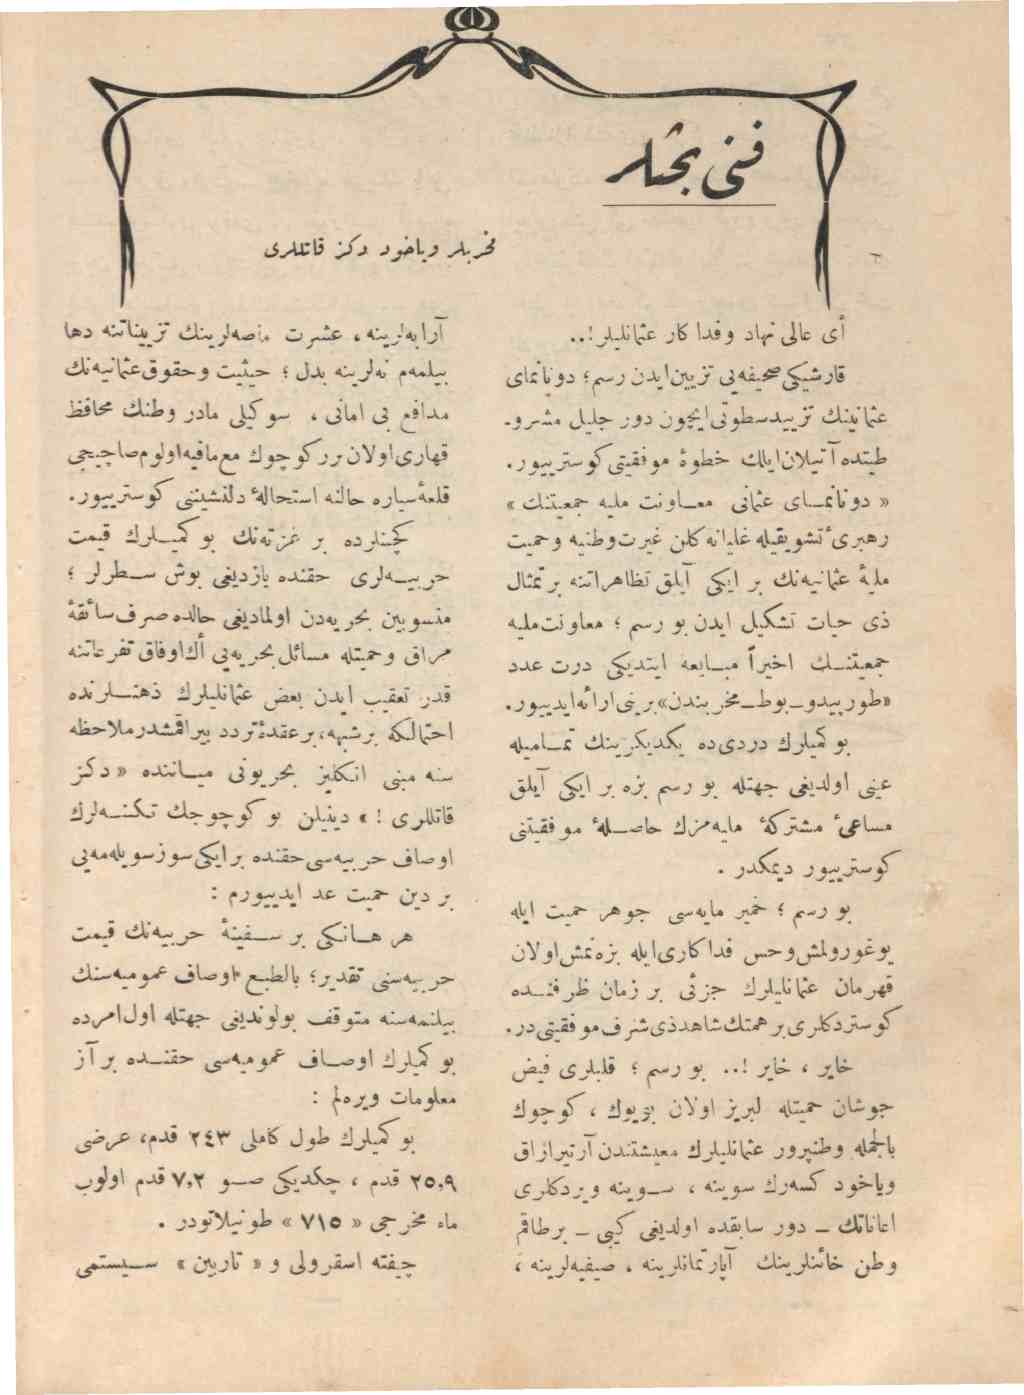 فنی بحثلر
مخربلر ویاخود دكز قاتللری
أی عالی نهاد وفدا كار عثمانلیلر!..
قارشیكی صحیفه‌یی تزیین ایدن رسم؛ دونانمای
عثمانینك تزیید سطوتی ایچون دور جلیل مشرو-
طیتده آتیلان ایلك خطوهٔ موفقیتی كوسترییور.
« دونانمـای عثمانی معـاونت ملیه جمعیتنك »
رهبری ٔ تشویقیله غلیانه كلن غیرت وطنیه وحمیت
ملیهٔ عثمانیه‌نك بر ایكی آیلق تظاهراتنه بر تمثال
ذی حیات تشكیل ایدن بو رسم ؛ معاونت ملیه
جمعیتنـك اخیراً مبـایعه ایتدیكی درت عدد
«طورپیدو ـ بوط ـ مخربندن» برینی ارائه ایدییور.
بو كمیلرك دردی ده یكدیكرینك تمـامیله
عینی اولدیغی جهتله بو رسم بزه بر ایكی آیلق
مساعیٔ مشتركهٔ ملیه‌مزك حاصـلهٔ موفقیتنی
كوسترییور دیمكدر .
بو رسم ؛ خمیر مایه‌سی جوهر حمیت ایله
یوغورولمش وحس فداكاری ایله بزه‌نمش اولان
قهرمان عثمانلیلرك جزئی بر زمان ظرفنـده
كوستردكلری بر همتك شاهد ذی شرف موفقیتی در.
خایر ، خایر !.. بو رسم ؛ قلبلری فیض
جوشان حمیتله لبریز اولان بیوك ، كوچوك
بالجمله وطنپرور عثمانلیلرك معیشتندن آرتیراراق
ویاخود كسه‌رك سوینه ، سـوینه ویردكلری
اعاناتك ـ دور سابقده اولدیغی كبی ـ بر طاقم
وطن خائنلرینك آپارتمانلرینه ، صیفیه‌لرینه ،
آرابه‌لرینه ، عشرت ماصه‌لرینك تزییناتنه دها
بیلمه‌م نه‌لرینه بدل ؛ حیثیت وحقوق عثمانیه‌نك
مدافع بی امانی ، سوكیلی مادر وطنك محافظ
قهاری اولان برر كوچوك مع‌مافیه اولوم صاچیجی
قلعهٔ سیاره حالنه استحالهٔ دلنشینی كوسترییور.
كچنلرده بر غزته‌نك بو كمیـلرك قیمت
حربیـه‌لری حقنده یازدیغی بوش سـطرلر ؛
منسوبین بحریه‌دن اولمادیغی حالده صرف سائقهٔ
مراق وحمیتله مسائل بحریه‌یی أك اوفاق تفرعاتنه
قدر تعقیب ایدن بعض عثمانلیلرك ذهنـلرنده
احتمالكه بر شبهه، بر عقدهٔ تردد بیراقمشدر ملاحظه
سنه مبنی انكلیز بحریونی میـاننده « دكز
قاتللری ! » دینیلن بو كوچوجك تكنـه‌لرك
اوصاف حربیه‌سی حقنده بر ایكی سوز سویله‌مه‌یی
بر دین حمیت عد ایدییورم :
هر هـانكی بر سـفینهٔ حربیه‌نك قیمت
حربیه‌سنی تقدیر؛ بالطبـع اوصاف عمومیه‌سنك
بیلنمه‌سنه متوقف بولوندیغی جهتله اول امرده
بو كمیلرك اوصـاف عمومیه‌سی حقنـده بر آز
معلومات ویره‌لم :
بو كمیلرك طول كاملی ٢٤٣ قدم، عرضی
٢٥,٩ قدم ، چكدیكی صـو ٧,٢ قدم اولوب
ماء مخرجی « ٧١٥ » طونیلاتودر .
چیفته اسقرولی و « تاربین » سـیستمی